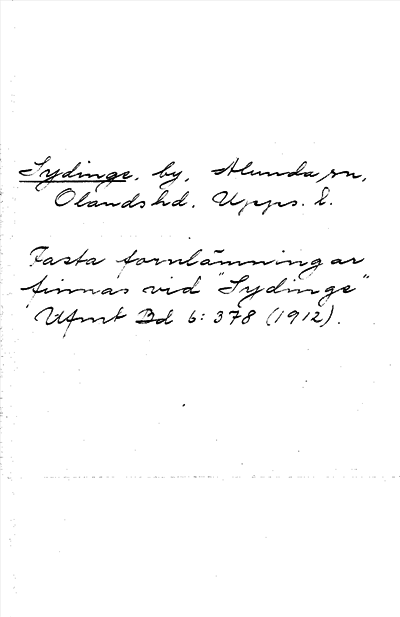 Lydinge, by, Alunda sn,
Olands hd. Upps. l.
Fasta fornlämningar
finnas vid "Lydinge"
Ufmt Bd 6: 378 (1912).